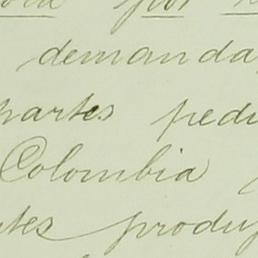 por
demanda
partes pedi
Colombia
tes produj